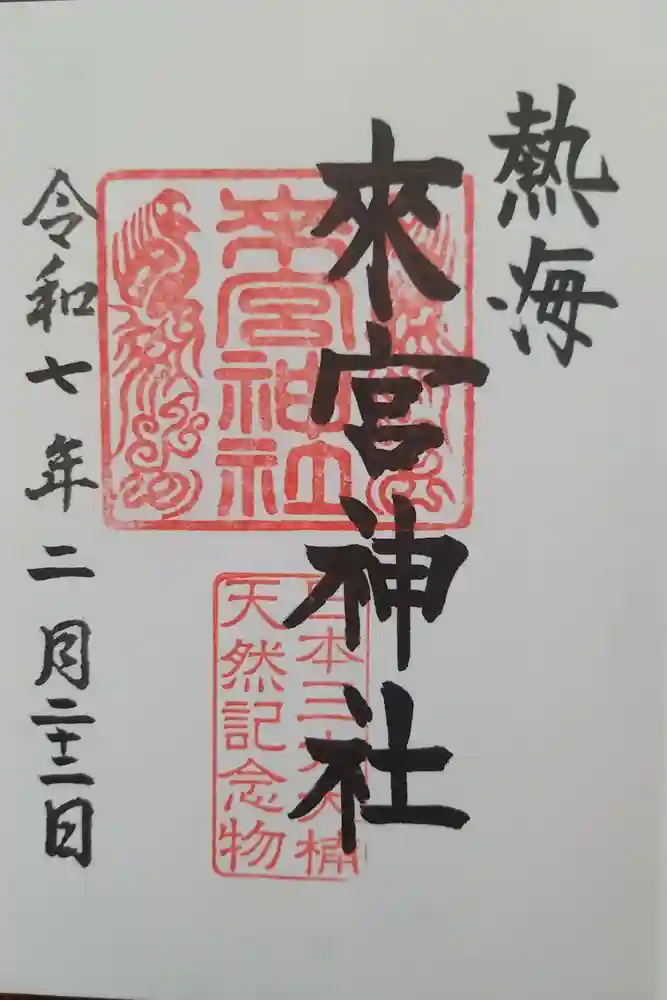 熱海
來宮神社
来宮神社
日本三大大楠
天然記念物
令和七年二月二十二日